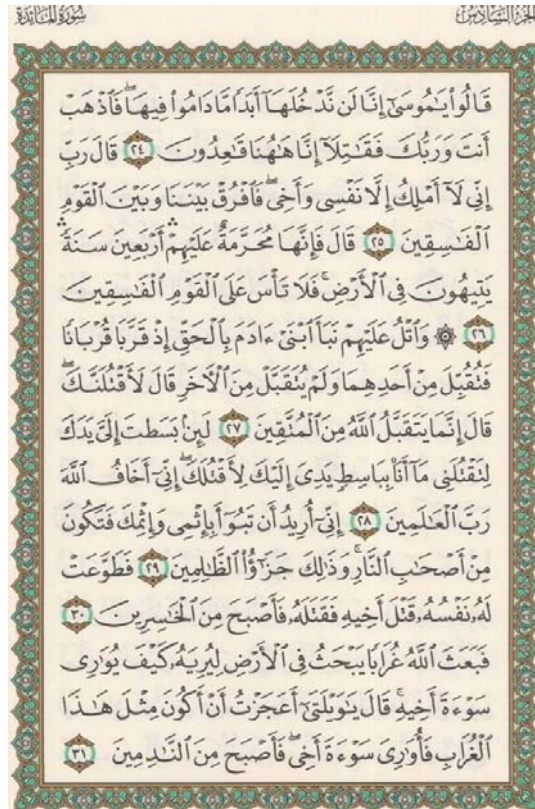 الجزء السادس
سورة المائدة
قَالُوا۟ يَـٰمُوسَىٰٓ إِنَّا لَن نَّدْخُلَهَآ أَبَدًا مَّا دَامُوا۟ فِيهَا ۖ فَٱذْهَبْ
أَنتَ وَرَبُّكَ فَقَـٰتِلَآ إِنَّا هَـٰهُنَا قَـٰعِدُونَ ٢٤ قَالَ رَبِّ
إِنِّى لَآ أَمْلِكُ إِلَّا نَفْسِى وَأَخِى ۖ فَٱفْرُقْ بَيْنَنَا وَبَيْنَ ٱلْقَوْمِ
ٱلْفَـٰسِقِينَ ٢٥ قَالَ فَإِنَّهَا مُحَرَّمَةٌ عَلَيْهِمْ ۛ أَرْبَعِينَ سَنَةً ۛ
يَتِيهُونَ فِى ٱلْأَرْضِ ۚ فَلَا تَأْسَ عَلَى ٱلْقَوْمِ ٱلْفَـٰسِقِينَ
٢٦ ۞ وَٱتْلُ عَلَيْهِمْ نَبَأَ ٱبْنَىْ ءَادَمَ بِٱلْحَقِّ إِذْ قَرَّبَا قُرْبَانًا
فَتُقُبِّلَ مِنْ أَحَدِهِمَا وَلَمْ يُتَقَبَّلْ مِنَ ٱلْـَٔاخَرِ قَالَ لَأَقْتُلَنَّكَ ۖ
قَالَ إِنَّمَا يَتَقَبَّلُ ٱللَّهُ مِنَ ٱلْمُتَّقِينَ ٢٧ لَئِنۢ بَسَطتَ إِلَىَّ يَدَكَ
لِتَقْتُلَنِى مَآ أَنَا۠ بِبَاسِطٍ يَدِىَ إِلَيْكَ لِأَقْتُلَكَ ۖ إِنِّىٓ أَخَافُ ٱللَّهَ
رَبَّ ٱلْعَـٰلَمِينَ ٢٨ إِنِّىٓ أُرِيدُ أَن تَبُوٓأَ بِإِثْمِى وَإِثْمِكَ فَتَكُونَ
مِنْ أَصْحَـٰبِ ٱلنَّارِ ۚ وَذَٰلِكَ جَزَٰٓؤُا۟ ٱلظَّـٰلِمِينَ ٢٩ فَطَوَّعَتْ
لَهُۥ نَفْسُهُۥ قَتْلَ أَخِيهِ فَقَتَلَهُۥ فَأَصْبَحَ مِنَ ٱلْخَـٰسِرِينَ ٣٠
فَبَعَثَ ٱللَّهُ غُرَابًا يَبْحَثُ فِى ٱلْأَرْضِ لِيُرِيَهُۥ كَيْفَ يُوَٰرِى
سَوْءَةَ أَخِيهِ ۚ قَالَ يَـٰوَيْلَتَىٰٓ أَعَجَزْتُ أَنْ أَكُونَ مِثْلَ هَـٰذَا
ٱلْغُرَابِ فَأُوَٰرِىَ سَوْءَةَ أَخِى ۖ فَأَصْبَحَ مِنَ ٱلنَّـٰدِمِينَ ٣١